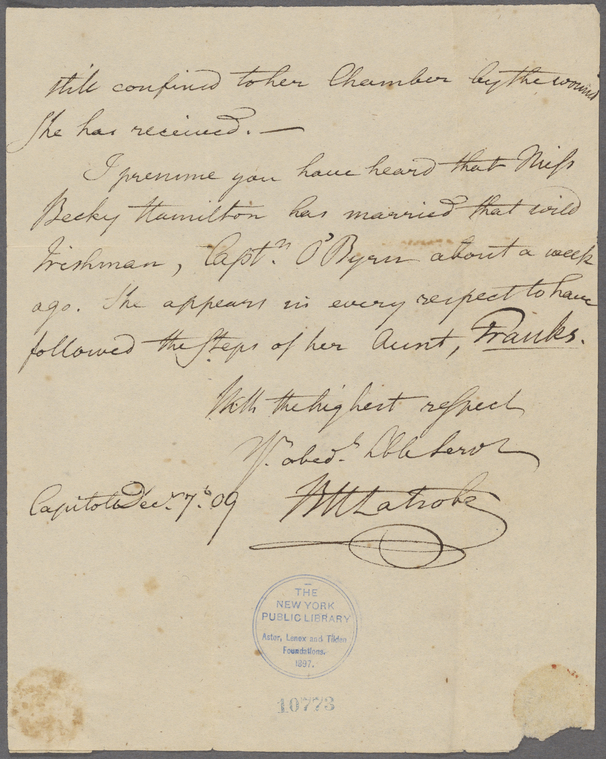 still confined to her Chamber by the wound
She has received. —
I presume you have heard that Miss
Becky Hamilton has married that wild
Irishman, Captn. O'Byrn about a week
ago. She appears in every respect to have
followed the steps of her Aunt, Franks.
With the highest respect
Yr. obedt. hble Servt
Capitol Decr. 7th. 09 BHLatrobe
THE
NEW YORK
PUBLIC LIBRARY
Astor, Lenox and Tilden
Foundations.
1897.
10773